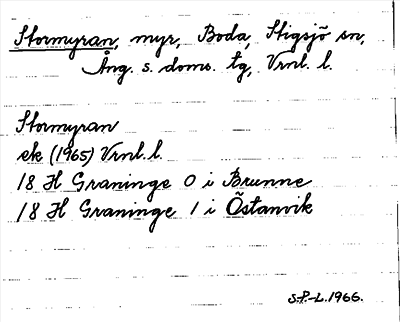 Stormyran, myr, Boda, Stigsjö sn,
Ång. s. doms. tg, Vrnl. l.
Stormyran
ek (1965) Vrnl. l.
18 H Graninge 0 i Brunne
18 H Graninge 1 i Östanvik
S.P-L.1966.